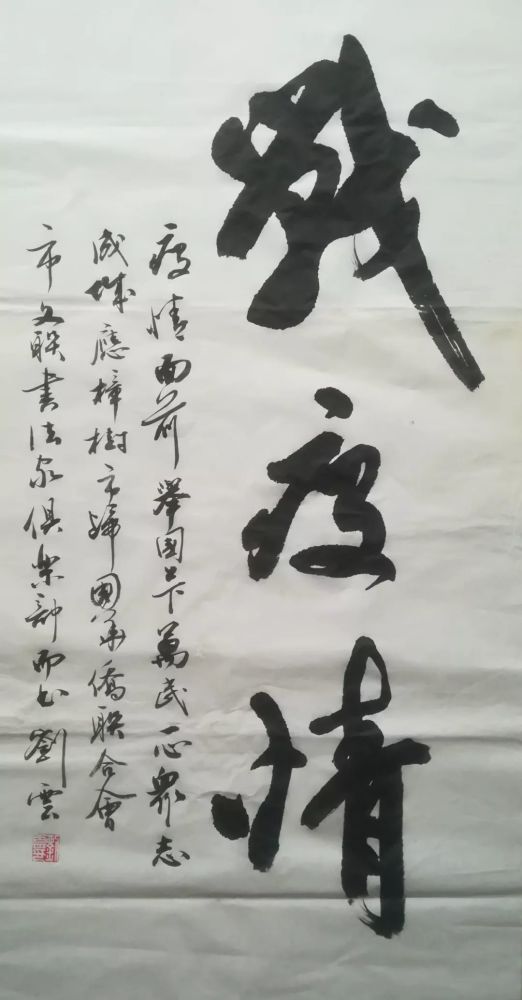 戰疫情
疫情面前舉國上下萬民一心眾志
成城應樟樹市歸國華僑聯合會
市文联書法家俱樂部而書劉雲